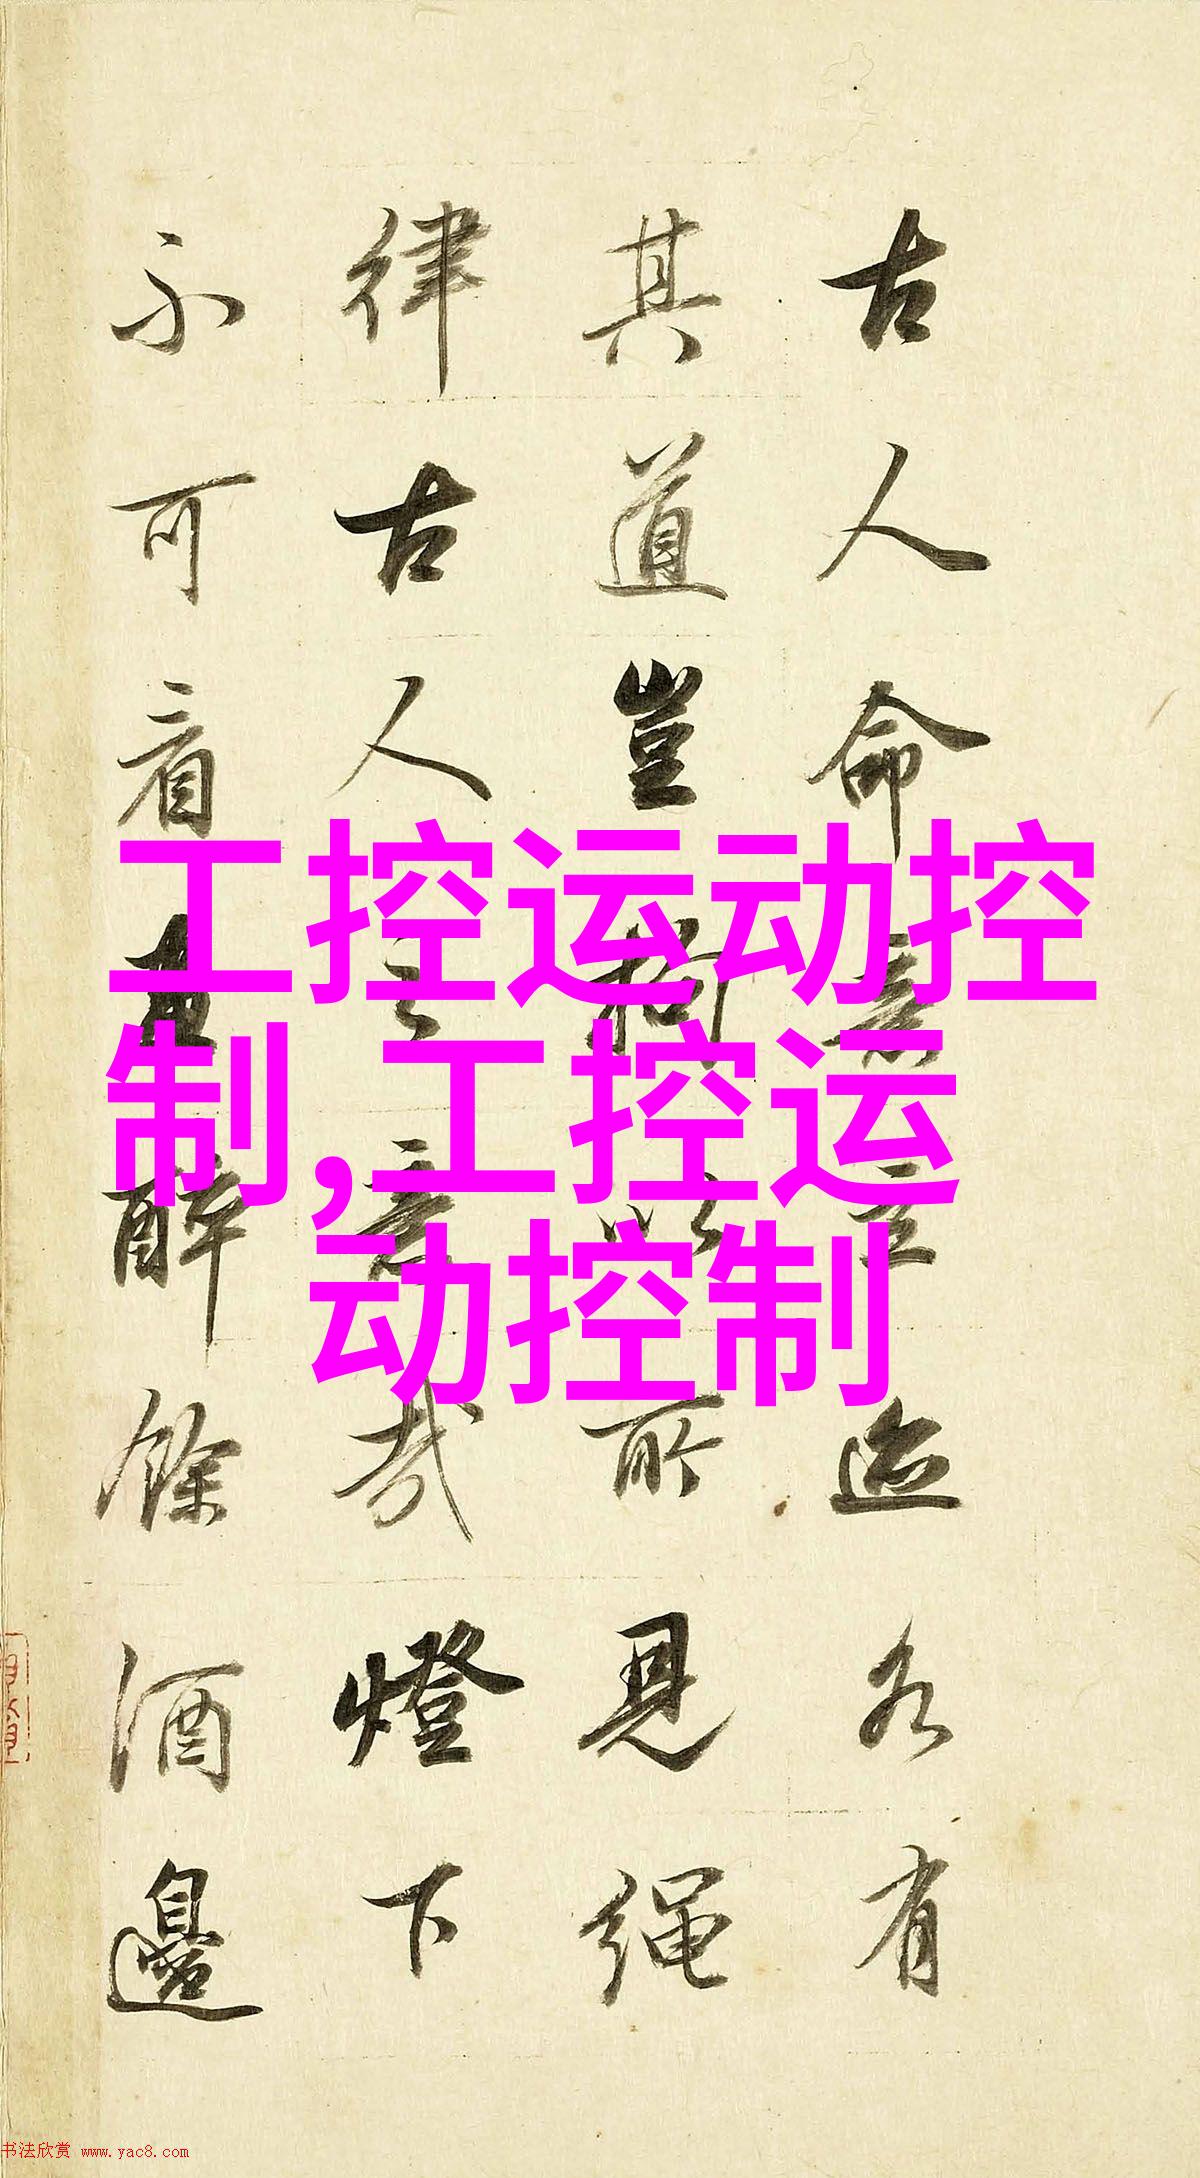 古人命意立迹各有
其道豈拘以所見繩
律古人之意哉燈下
不可看畫醉餘酒邊
工控运动控
制,工控运
动控制
书法欣赏 www.yac8.com